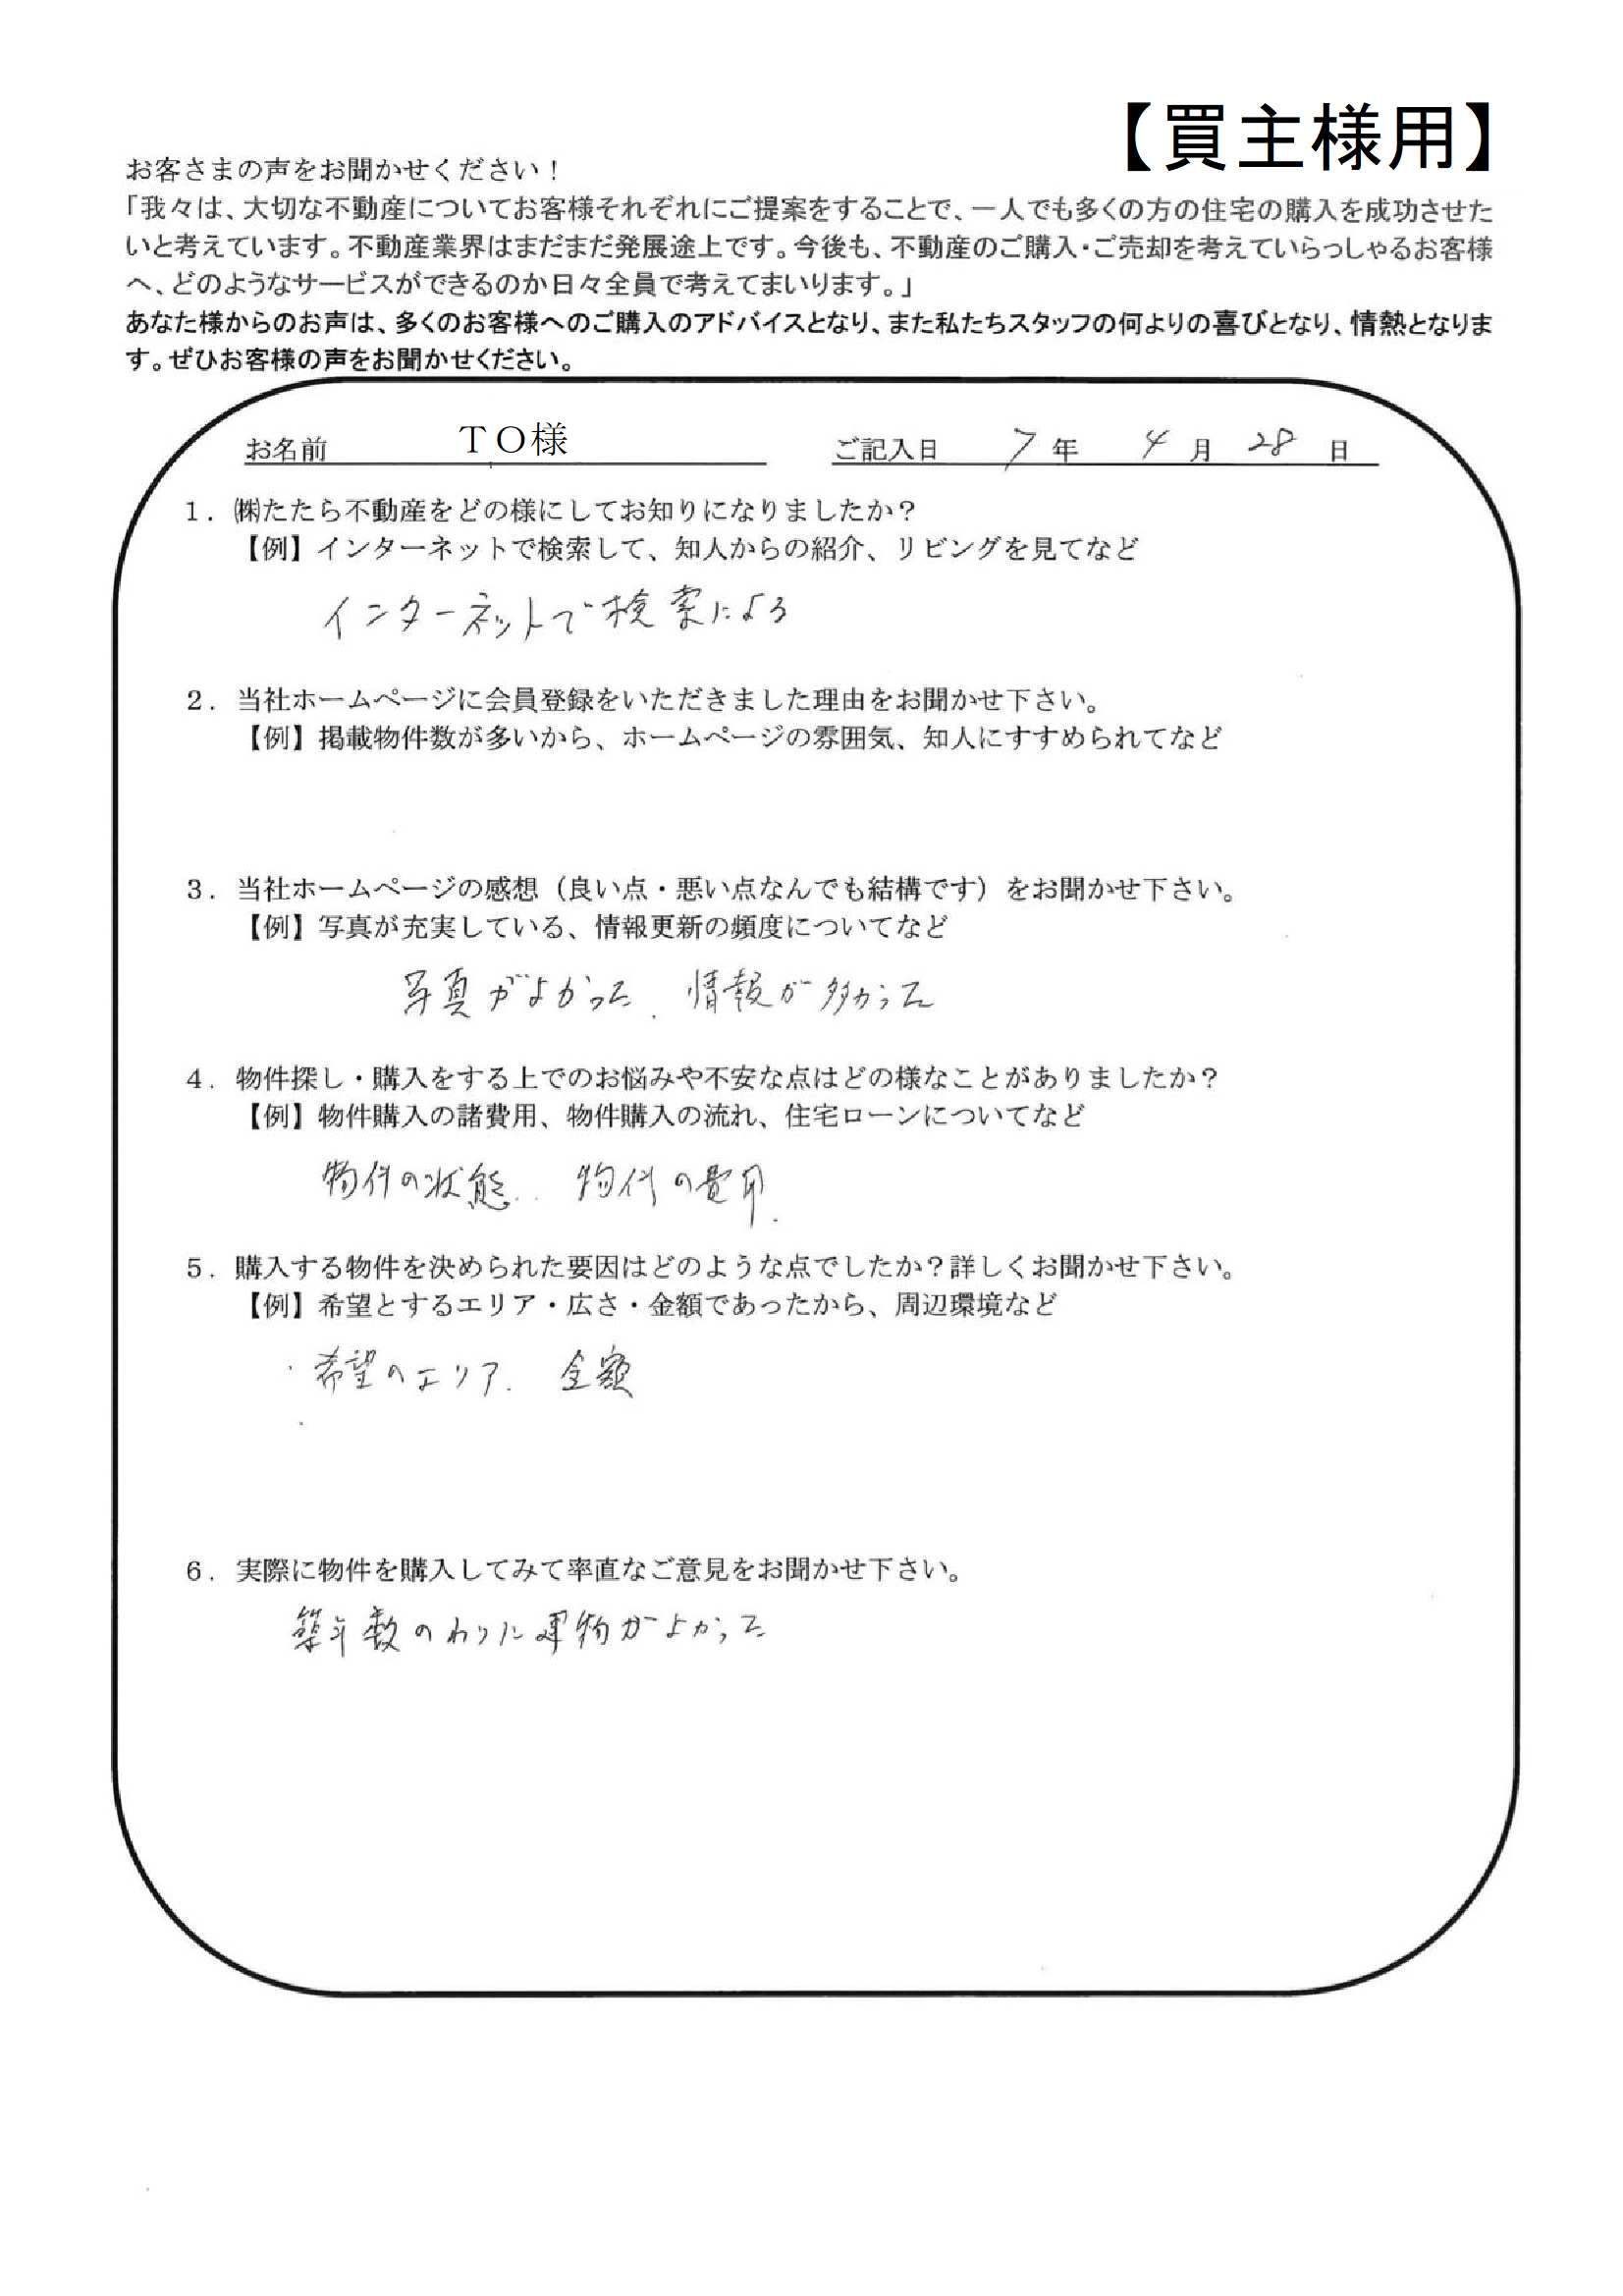 【買主様用】
お客さまの声をお聞かせください！
「我々は、大切な不動産についてお客様それぞれにご提案をすることで、一人でも多くの方の住宅の購入を成功させた
いと考えています。不動産業界はまだまだ発展途上です。今後も、不動産のご購入・ご売却を考えていらっしゃるお客様
へ、どのようなサービスができるのか日々全員で考えてまいります。」
あなた様からのお声は、多くのお客様へのご購入のアドバイスとなり、また私たちスタッフの何よりの喜びとなり、情熱となりま
す。ぜひお客様の声をお聞かせください。
お名前 ＴＯ様 ご記入日 7 年 4 月 28 日
1．㈱たたら不動産をどの様にしてお知りになりましたか？
【例】インターネットで検索して、知人からの紹介、リビングを見てなど
インターネットで検索による
2．当社ホームページに会員登録をいただきました理由をお聞かせ下さい。
【例】掲載物件数が多いから、ホームページの雰囲気、知人にすすめられてなど
3．当社ホームページの感想（良い点・悪い点なんでも結構です）をお聞かせ下さい。
【例】写真が充実している、情報更新の頻度についてなど
写真がよかった、情報が多かった
4．物件探し・購入をする上でのお悩みや不安な点はどの様なことがありましたか？
【例】物件購入の諸費用、物件購入の流れ、住宅ローンについてなど
物件の状態、物件の費用．
5．購入する物件を決められた要因はどのような点でしたか？詳しくお聞かせ下さい。
【例】希望とするエリア・広さ・金額であったから、周辺環境など
・希望のエリア、金額
6．実際に物件を購入してみて率直なご意見をお聞かせ下さい。
築年数のわりに建物がよかった